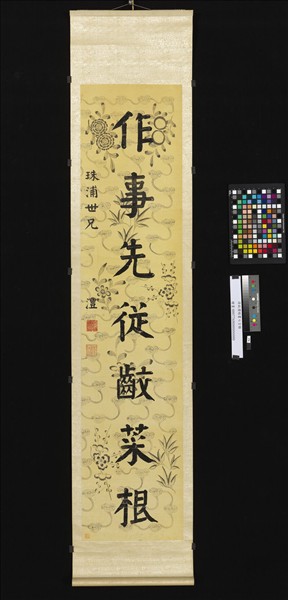 作事先從齩菜根
珠浦世兄
澧